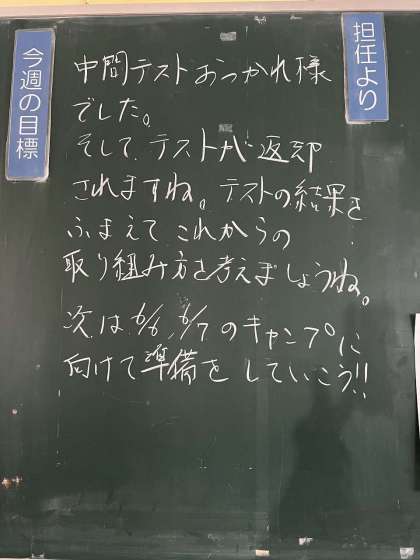 担任より
中間テストおつかれ様
でした。
そして、テストが返却
されますね。テストの結果を
ふまえて、これからの
取り組み方を考えましょうね。
次は6/6、6/7のキャンプに
向けて準備をしていこう!!
今週の目標